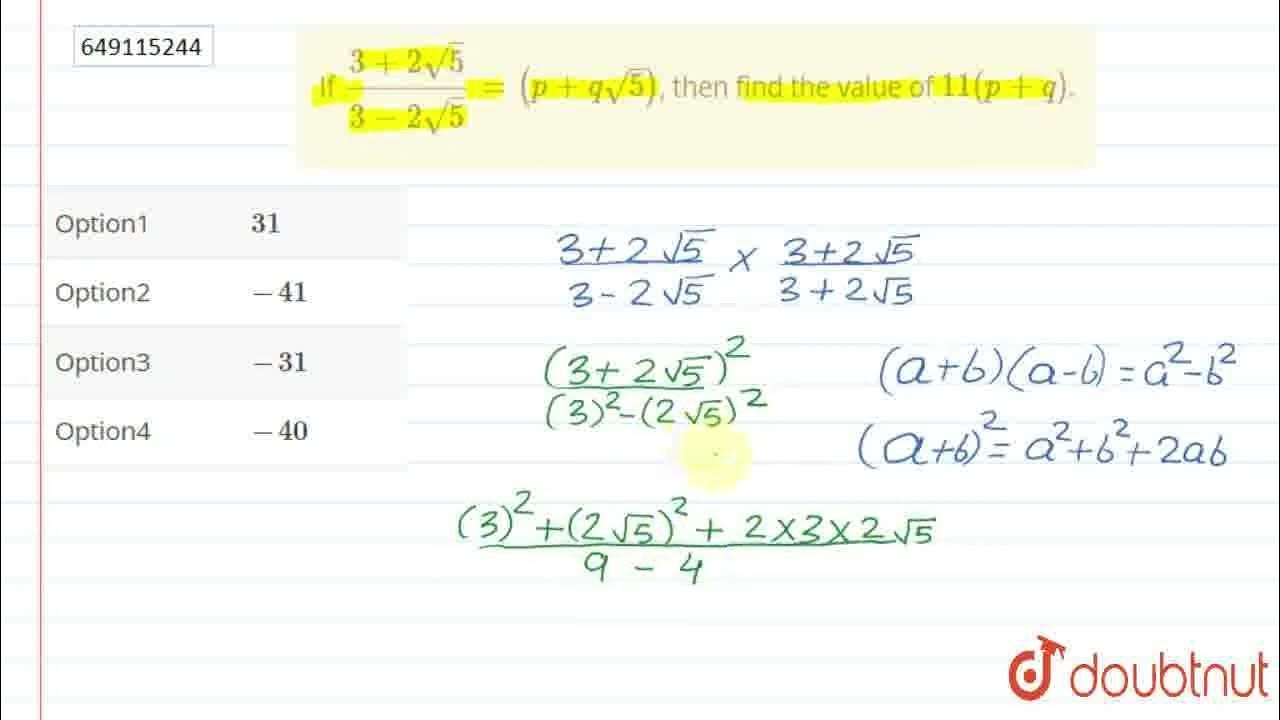 649115244
If (3 + 2√5)/(3 − 2√5) = (p + q√5), then find the value of 11(p + q).
Option1 31
Option2 −41
Option3 −31
Option4 −40
(3+2√5)/(3-2√5) × (3+2√5)/(3+2√5)
(3+2√5)²/((3)²-(2√5)²)
(a+b)(a-b)=a²-b²
(a+b)²=a²+b²+2ab
((3)²+(2√5)²+2×3×2√5)/(9-4)
doubtnut